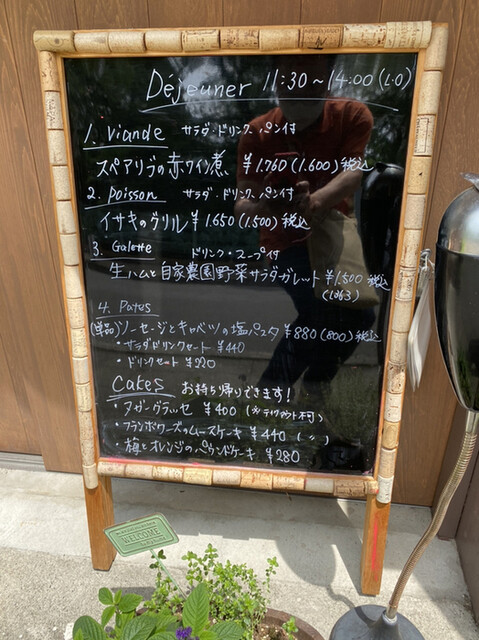 Déjeuner 11:30~14:00(L.O)
1. Viande サラダ・ドリンク、パン付
スペアリブの赤ワイン煮 ¥1.760(1.600)税込
2. Poisson サラダ・ドリンク、パン付
イサキのグリル ¥1.650(1.500)税込
3. Galette ドリンク・スープ付
生ハムと自家農園野菜サラダガレット ¥1.500税込
(1.363)
4. Pates
(単品)ソーセージとキャベツの塩パスタ ¥880(800)税込
・サラダドリンクセート ¥440
・ドリンクセート ¥220
Cakes お持ち帰りできます!
・ヌガーグラッセ ¥400 (※テイクアウト不可)
・フランボワーズのムースケーキ ¥440 ( 〃 )
・梅とオレンジのパウンドケーキ ¥280
WELCOME